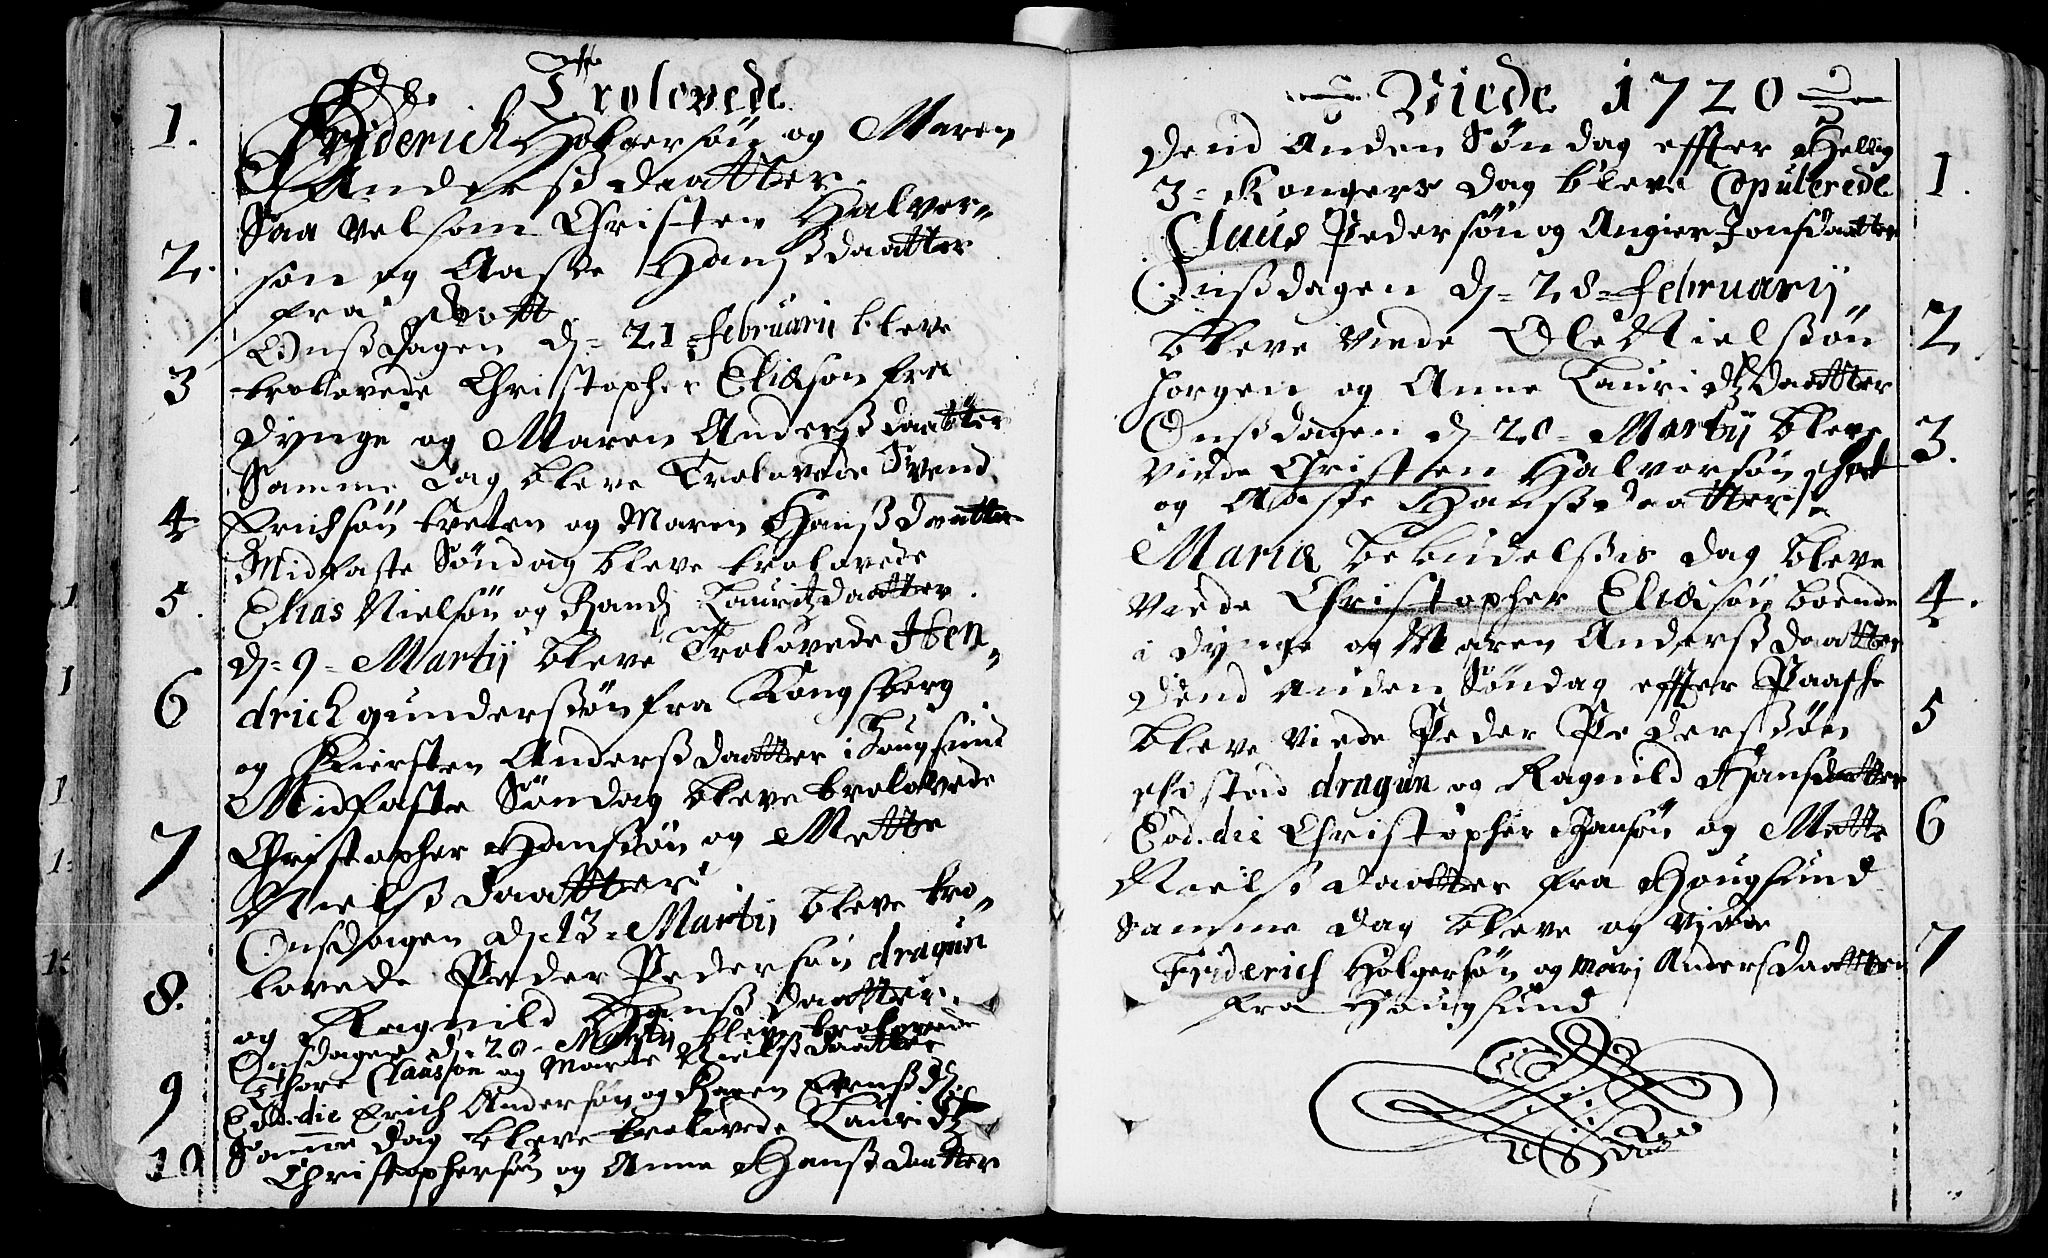 De Trolovede
1. Friderich Holgersøn og Maren
Andersß daatter.
Saa velsom Christen Halvor-
2. søn og Aaste Hanßdaatter
fra
Onßdagen d. 21 februarii bleve
3 trolovede Christopher Eliæson fra
Dynge og Maren Anderßdaatter
Samme Dag bleve Trolovede Svend
4 Erichsøn tveten og Maren Hanßdaatter
Midfaste Søndag bleve trolovede
5. Elias Nielsøn og Randj Lauritzdaatter.
d. 9 Martij bleve Trolovede Hen-
6 drich gunderßøn fra Kongsberg
og Kiersten Anderßdaatter i Hougsund
Midfaste Søndag bleve trolovede
7 Christopher Hansøn og Mette
Nielßdaatter
Onsdagen d. 13 Martij bleve tro-
lovede Peder Pedersøn dragun
8. og Ragnild Hanßdaatter.
Onsdagen d. 20 Martij bleve trolovede
Thore Claussøn og Marte Nielßdaatter
9 Eod. die Erich Andersøn og Karen Evenß d.
Samme dag bleve trolovede Lauridtz
10 Christophersøn og Anne Hanßdaatter
Viede 1720
Dend Anden Søndag effter Hellig
3 Kongers dag bleve Copulerede 1.
Claus Pedersøn og Angier Jonsdaatter
Onßdagen d. 28 februarij
bleve viede Ole Nielßøn 2
horgen og Anne Lauridtzdaatter
Onßdagen d. 20 Martij bleve
viede Christen Halvorsøn 3.
og Aaste Hanßdaatter
Mariæ bebudelßis dag bleve
viede Christopher Eliæsøn boende 4.
i dynge og Maren Anderßdaatter
Dend anden Søndag effter Paasche
bleve viede Peder Pederßøn 5
dragun og Ragnild Hansdaatter
Eod. die Christopher Hansøn og Mette 6
Nielsdaatter fra Hougsund
Samme dag bleve og viede
Friderich Holgersøn og Marj Andersdaatter 7
fra Hougsund